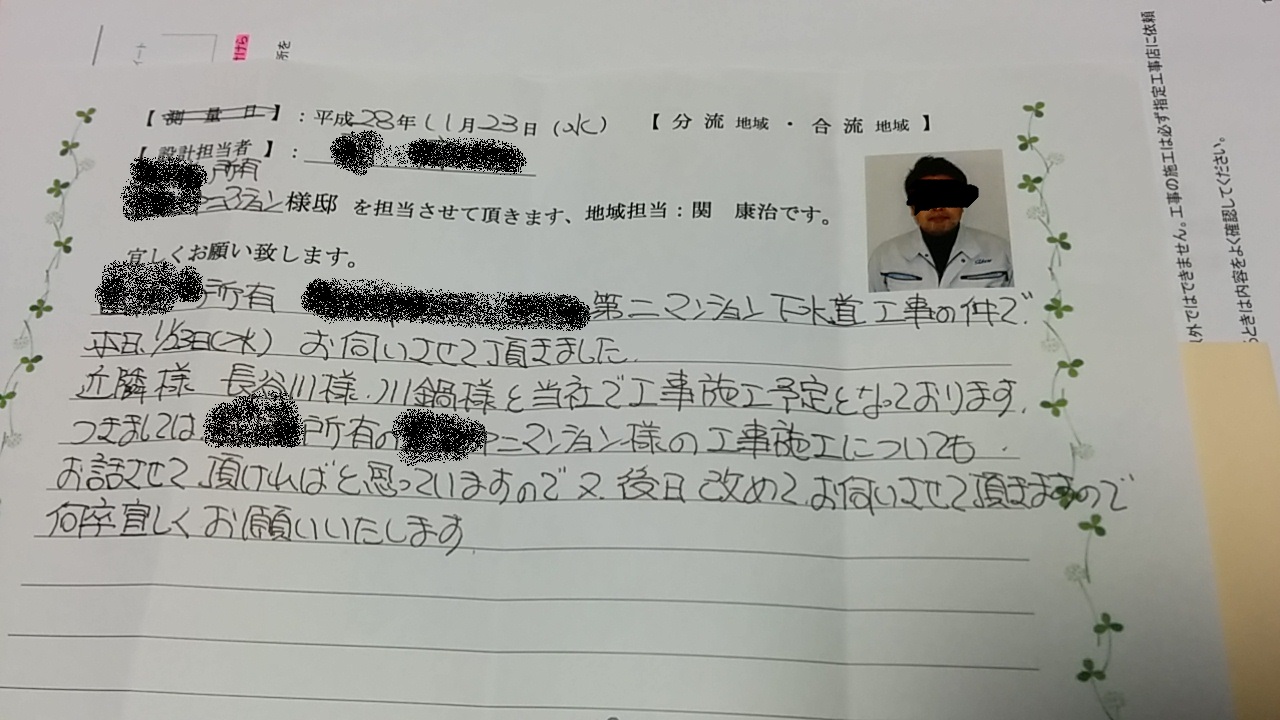 【 測 量 日 】 : 平成28年11月23日 (水) 【 分流 地域 ・ 合流 地域 】
【 設計担当者 】 :
所有
マンション様邸 を担当させて頂きます、地域担当:関 康治です。
宜しくお願い致します。
所有 第二マンション下水道工事の件で
本日11/23日(水) お伺いさせて頂きました.
近隣様 長谷川様.川鍋様と当社で工事施工予定となっております.
つきましては 所有の ニマンション様の工事施工についても.
お話させて頂ければと思っていますので又、後日改めてお伺いさせて頂きますので
何卒宜しくお願いいたします.
外ではできません。工事の施工は必ず指定工事店に依頼
ときは内容をよく確認してください。
所を